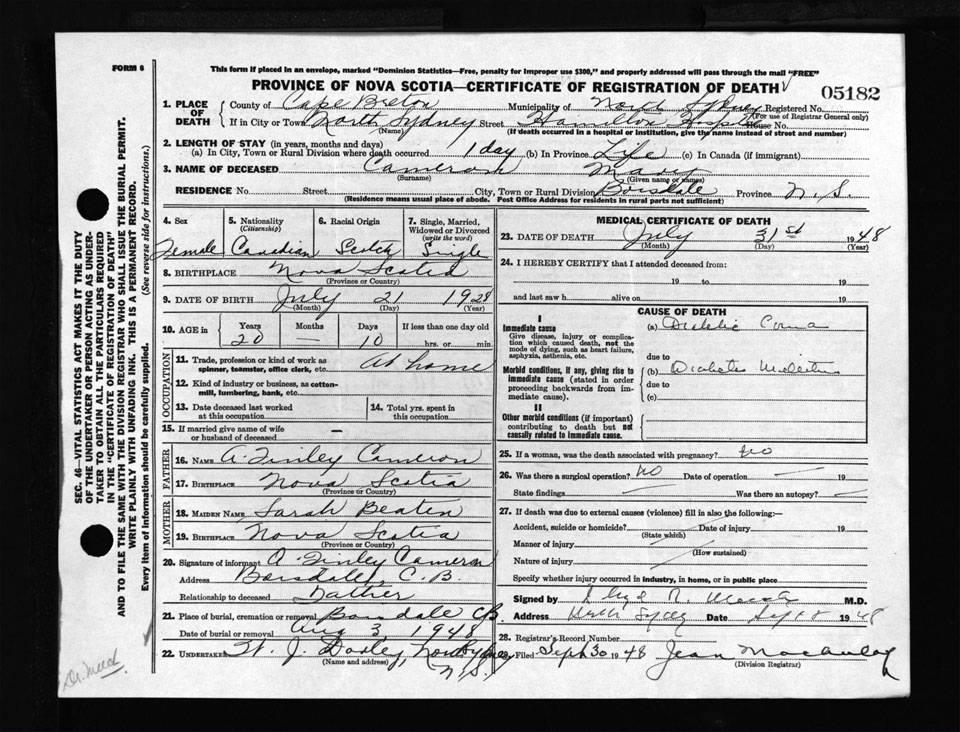 FORM 6
This form if placed in an envelope, marked "Dominion Statistics—Free, penalty for improper use $300," and properly addressed will pass through the mail "FREE"
PROVINCE OF NOVA SCOTIA—CERTIFICATE OF REGISTRATION OF DEATH
05182
1. PLACE OF DEATH County of Cape Breton Municipality of North Sydney Registered No.
(For use of Registrar General only)
If in City or Town North Sydney Street Hamilton Hospital House No.
(Name) (If death occurred in a hospital or institution, give the name instead of street and number)
2. LENGTH OF STAY (in years, months and days)
(a) In City, Town or Rural Division where death occurred 1 day (b) In Province Life (c) In Canada (if immigrant)
3. NAME OF DECEASED Cameron Mary
(Surname) (Given name or names)
RESIDENCE No. Street City, Town or Rural Division Boisdale Province N.S.
(Residence means usual place of abode. Post Office Address for residents in rural parts not sufficient)
4. Sex 5. Nationality (Citizenship) 6. Racial Origin 7. Single, Married, Widowed or Divorced (write the word)
Female Canadian Scotch Single
8. BIRTHPLACE Nova Scotia
(Province or Country)
9. DATE OF BIRTH July 21 1928
(Month) (Day) (Year)
10. AGE in Years Months Days If less than one day old
20 — 10 hrs. or min.
OCCUPATION
11. Trade, profession or kind of work as spinner, teamster, office clerk, etc. At home
12. Kind of industry or business, as cotton-mill, lumbering, bank, etc.
13. Date deceased last worked at this occupation
14. Total yrs. spent in this occupation
15. If married give name of wife or husband of deceased —
FATHER
16. NAME A. Finley Cameron
17. BIRTHPLACE Nova Scotia
(Province or Country)
MOTHER
18. MAIDEN NAME Sarah Beaton
19. BIRTHPLACE Nova Scotia
(Province or Country)
20. Signature of informant A. Finley Cameron
Address Boisdale, C.B.
Relationship to deceased Father
21. Place of burial, cremation or removal Boisdale CB.
Date of burial or removal Aug 3, 1948
22. UNDERTAKER W. J. Dooley, North Sydney
(Name and address) N.S.
MEDICAL CERTIFICATE OF DEATH
23. DATE OF DEATH July 31st 1948
(Month) (Day) (Year)
24. I HEREBY CERTIFY that I attended deceased from:
19 to 19
and last saw h alive on 19
CAUSE OF DEATH
I
Immediate cause
Give disease, injury or complication which caused death, not the mode of dying, such as heart failure, asphyxia, asthenia, etc.
(a) Diabetic Coma
due to
Morbid conditions, if any, giving rise to immediate cause (stated in order proceeding backwards from immediate cause).
(b) Diabetes Mellitus
due to
(c)
II
Other morbid conditions (if important) contributing to death but not causally related to immediate cause.
25. If a woman, was the death associated with pregnancy? No
26. Was there a surgical operation? No Date of operation 19
State findings Was there an autopsy?
27. If death was due to external causes (violence) fill in also the following:—
Accident, suicide or homicide? Date of injury 19
(State which)
Manner of injury
(How sustained)
Nature of injury
Specify whether injury occurred in industry, in home, or in public place
Signed by M.D.
Address North Sydney Date Sept 1948
28. Registrar's Record Number
Filed Sept 30 1948 Jean MacAulay
(Division Registrar)
SEC. 46—VITAL STATISTICS ACT MAKES IT THE DUTY
OF THE UNDERTAKER OR PERSON ACTING AS UNDER-
TAKER TO OBTAIN ALL THE PARTICULARS REQUIRED
IN THE "CERTIFICATE OF REGISTRATION OF DEATH"
AND TO FILE THE SAME WITH THE DIVISION REGISTRAR WHO SHALL ISSUE THE BURIAL PERMIT.
WRITE PLAINLY WITH UNFADING INK. THIS IS A PERMANENT RECORD.
Every item of information should be carefully supplied. (See reverse side for instructions.)
Dr. Meech